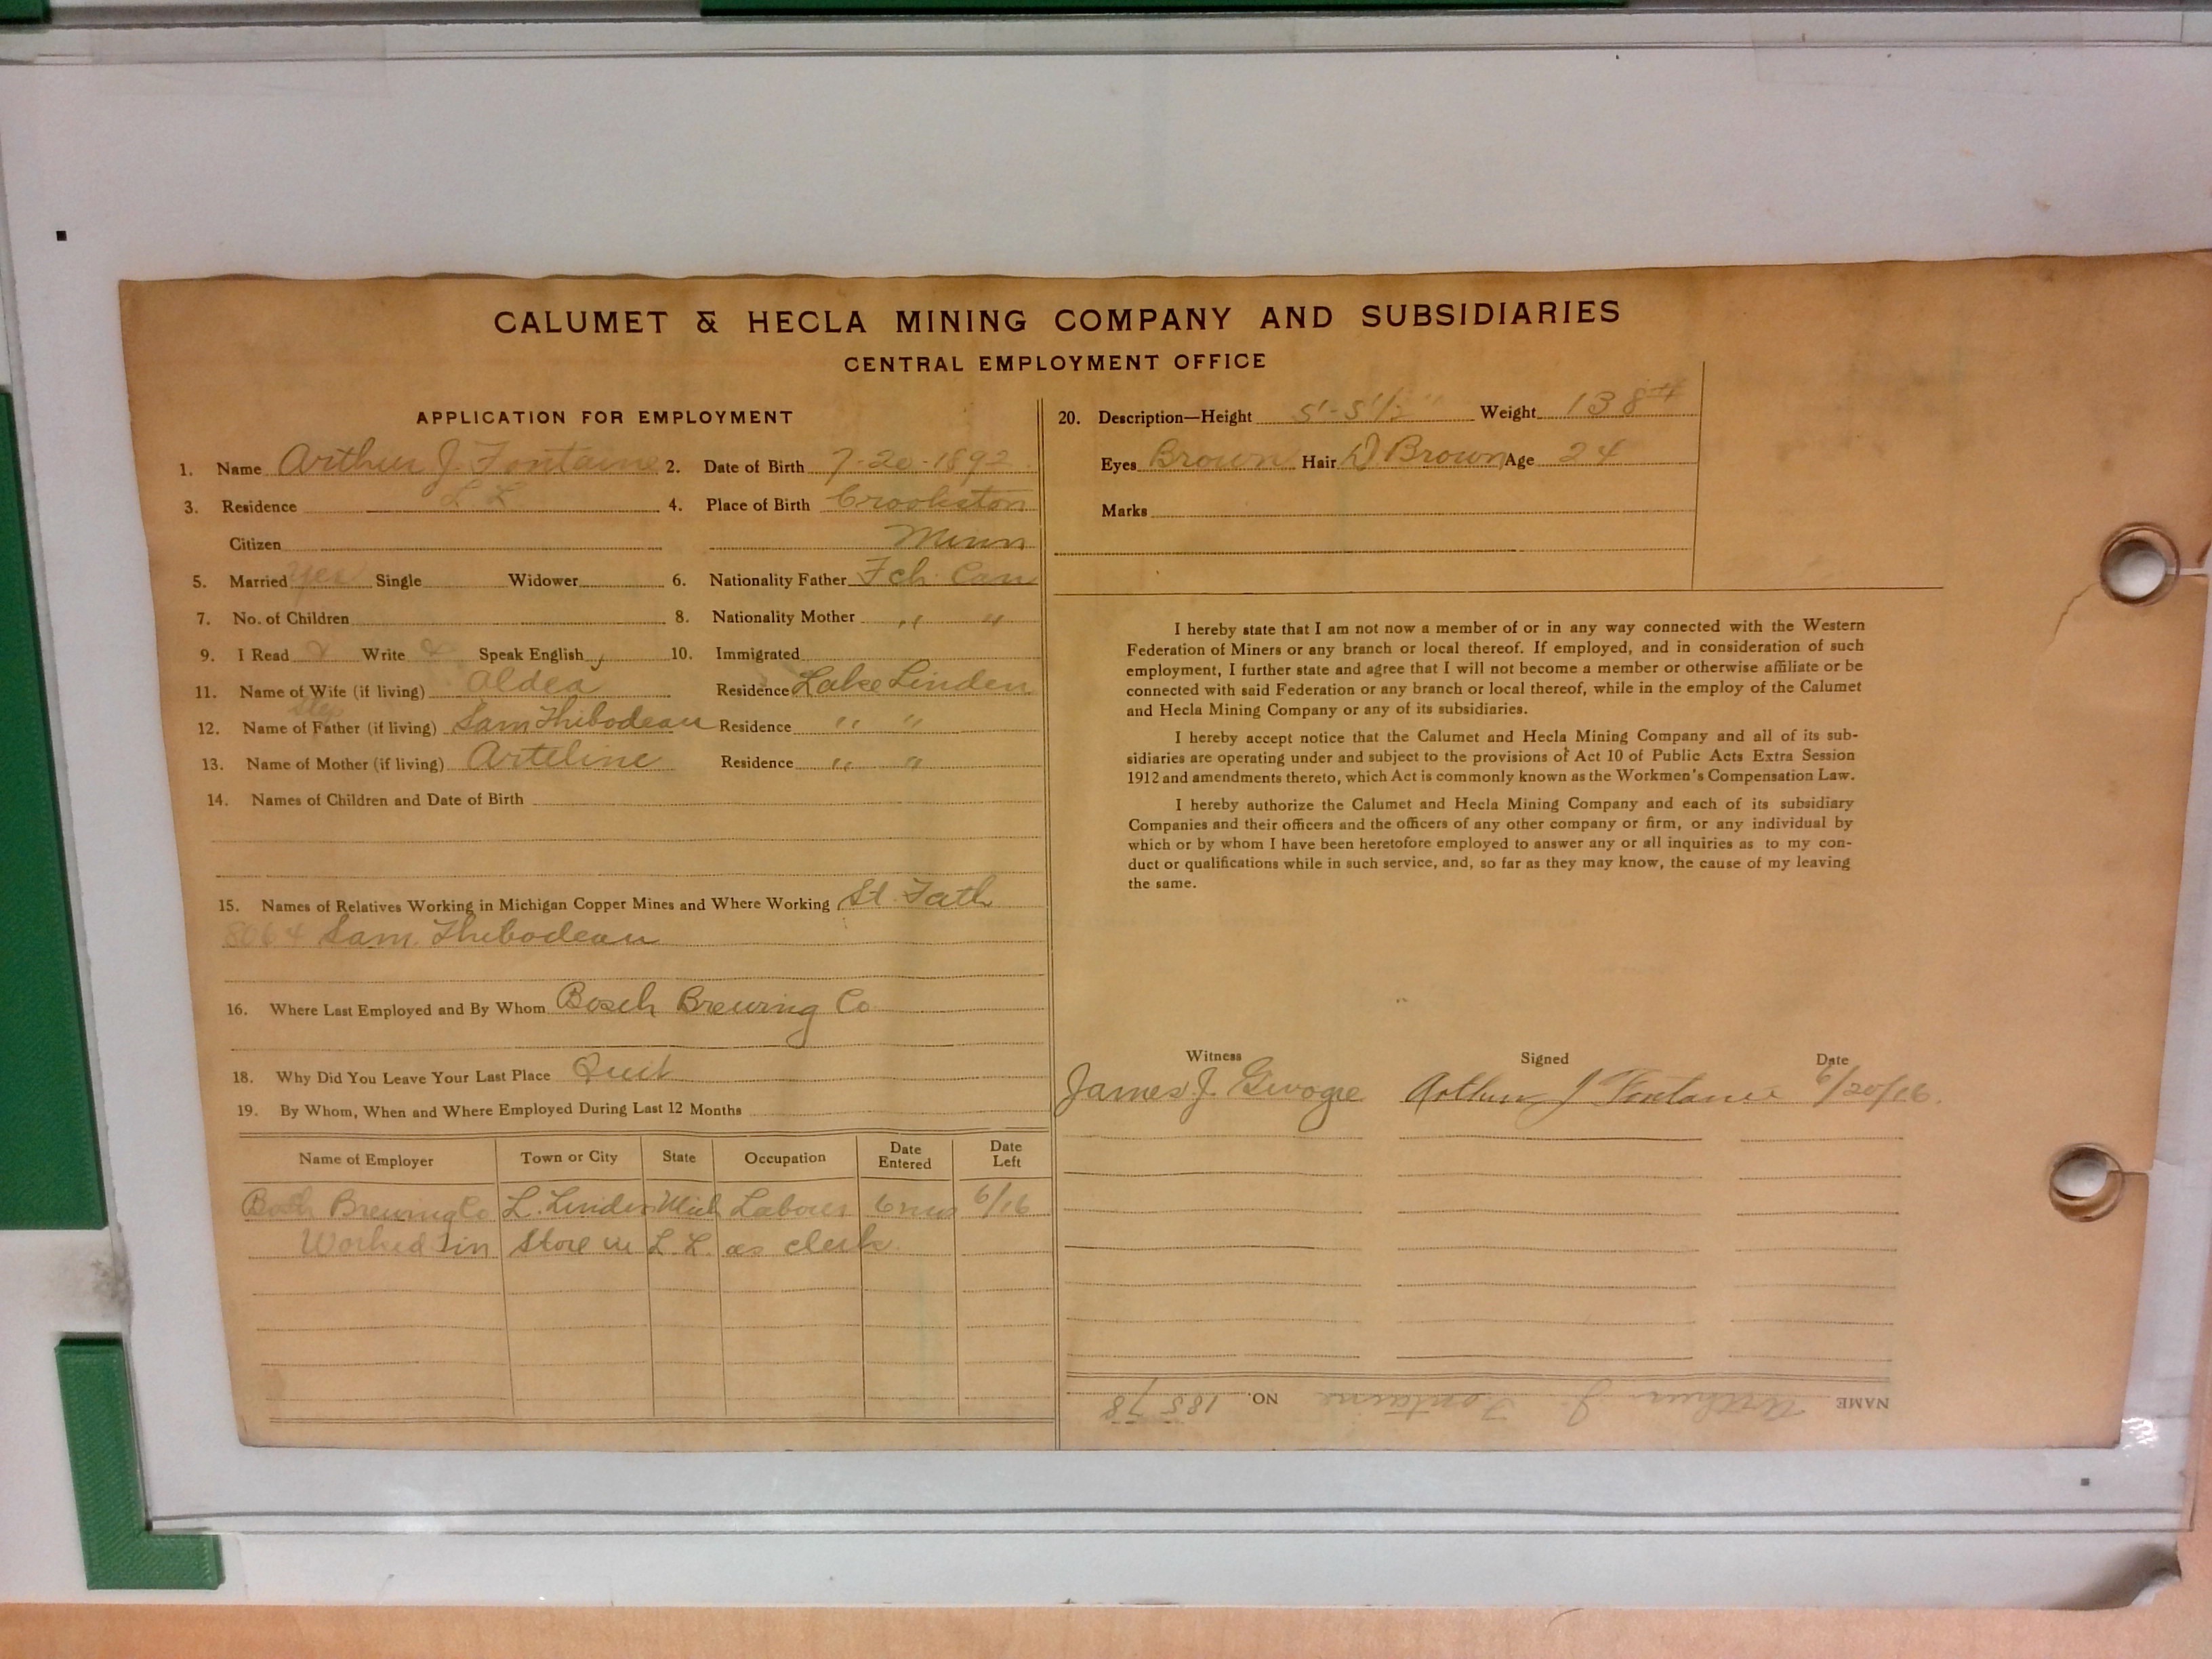 CALUMET & HECLA MINING COMPANY AND SUBSIDIARIES
CENTRAL EMPLOYMENT OFFICE
APPLICATION FOR EMPLOYMENT
1. Name Arthur J. Fontaine 2. Date of Birth 7-20-1892
3. Residence L L 4. Place of Birth Crookston
Citizen Minn
5. Married Yes Single Widower 6. Nationality Father Fch. Can
7. No. of Children 8. Nationality Mother " "
9. I Read Write Speak English 10. Immigrated
11. Name of Wife (if living) Aldea Residence Lake Linden
Step
12. Name of Father (if living) Sam Thibodeau Residence " "
13. Name of Mother (if living) Arteline Residence " "
14. Names of Children and Date of Birth
15. Names of Relatives Working in Michigan Copper Mines and Where Working St. Fath
8064 Sam. Thibodeau
16. Where Last Employed and By Whom Bosch Brewing Co
18. Why Did You Leave Your Last Place Quit
19. By Whom, When and Where Employed During Last 12 Months
Name of Employer Town or City State Occupation Date Entered Date Left
Bosch Brewing Co L. Linden Mich Labour 6 mos 6/16
Worked in Store in L. L. as clerk
20. Description—Height 5'-5 1/2" Weight 138
Eyes Brown Hair D. Brown Age 24
Marks
I hereby state that I am not now a member of or in any way connected with the Western
Federation of Miners or any branch or local thereof. If employed, and in consideration of such
employment, I further state and agree that I will not become a member or otherwise affiliate or be
connected with said Federation or any branch or local thereof, while in the employ of the Calumet
and Hecla Mining Company or any of its subsidiaries.
I hereby accept notice that the Calumet and Hecla Mining Company and all of its sub-
sidiaries are operating under and subject to the provisions of Act 10 of Public Acts Extra Session
1912 and amendments thereto, which Act is commonly known as the Workmen's Compensation Law.
I hereby authorize the Calumet and Hecla Mining Company and each of its subsidiary
Companies and their officers and the officers of any other company or firm, or any individual by
which or by whom I have been heretofore employed to answer any or all inquiries as to my con-
duct or qualifications while in such service, and, so far as they may know, the cause of my leaving
the same.
Witness Signed Date
James J. Arthur J Fontaine 6/20/16.
NAME Arthur J. Fontaine NO. 18578